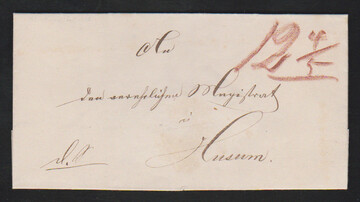 An
12 4/5
den verehrlichen Magistrat
in
Husum.
d. S.